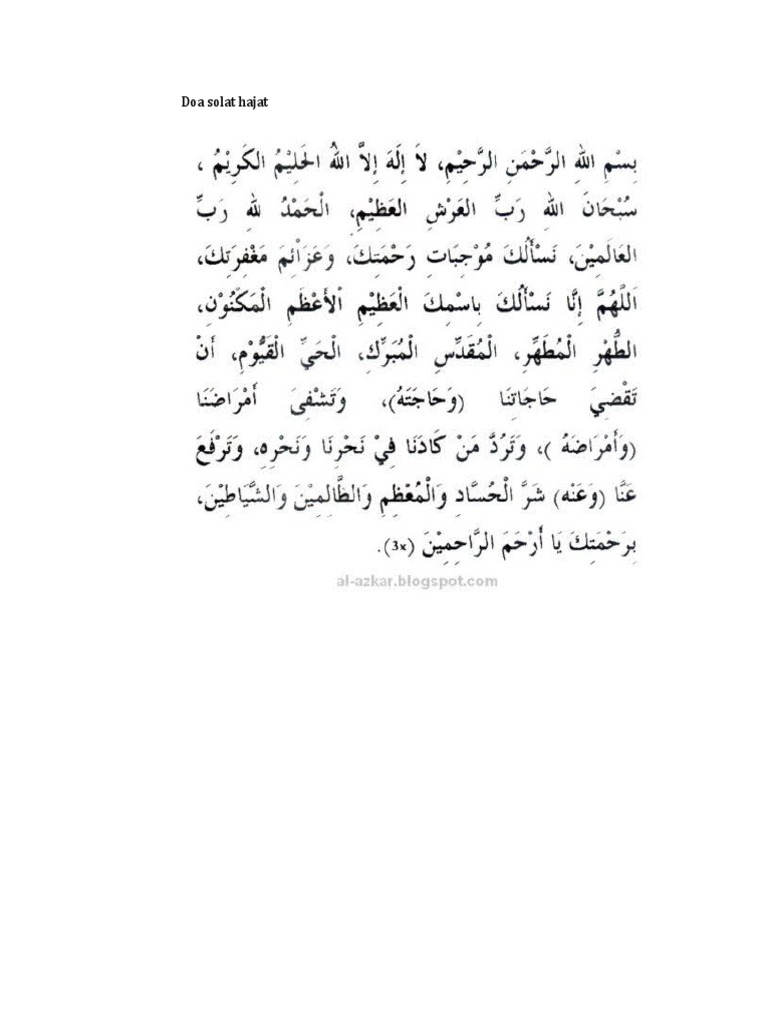 Doa solat hajat
بِسْمِ اللهِ الرَّحْمَنِ الرَّحِيْمِ، لاَ إِلَهَ إِلاَّ اللهُ الحَلِيْمُ الكَرِيْمُ ،
سُبْحَانَ اللهِ رَبِّ العَرْشِ العَظِيْمِ، الْحَمْدُ للهِ رَبِّ
العَالَمِيْنَ، نَسْأَلُكَ مُوْجِبَاتِ رَحْمَتِكَ، وَعَزَائِمَ مَغْفِرَتِكَ،
اَللَّهُمَّ إِنَّا نَسْأَلُكَ بِاسْمِكَ الْعَظِيْمِ اْلأَعْظَمِ الْمَكْنُوْنِ،
الطُّهْرِ الْمُطَهِّرِ، الْمُقَدَّسِ الْمُبَرَّكِ، الْحَيِّ الْقَيُّوْمِ، أَنْ
تَقْضِيَ حَاجَاتِنَا (وَحَاجَتَهُ)، وَتَشْفِىَ أَمْرَاضَنَا
(وَأَمْرَاضَهُ )، وَتَرُدَّ مَنْ كَادَنَا فِيْ نَحْرِنَا وَنَحْرِهِ، وَتَرْفَعَ
عَنَّا (وَعَنْه) شَرَّ الْحُسَّادِ وَالْمُعْظِمِ وَالظَّالِمِيْنَ وَالشَّيَاطِيْنَ،
بِرَحْمَتِكَ يَا أَرْحَمَ الرَّاحِمِيْنَ (3x).
al-azkar.blogspot.com